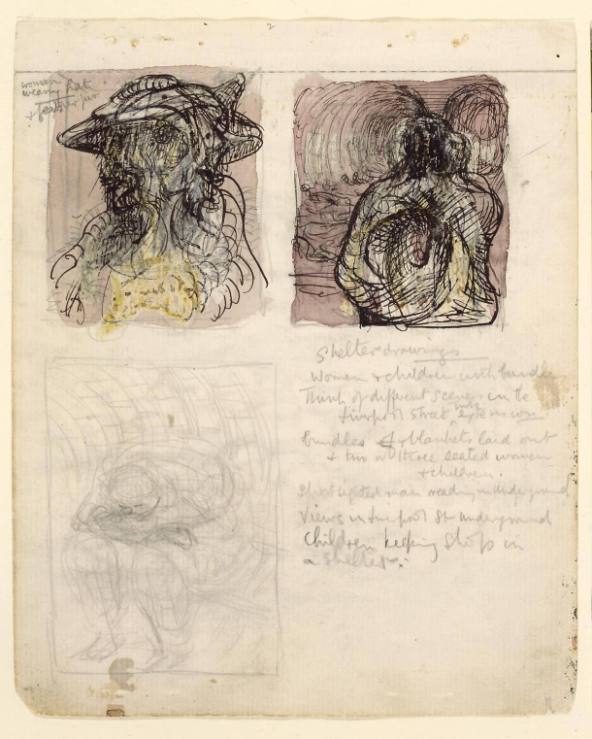 2
woman
wearing hat
+ feather fur
Shelter drawings
Women & children with bundle
Think of different scenes in the
Liverpool Street extension
bundles & blankets laid out
& two or three seated women
& children.
Short sighted man reading in Underground
Views in Liverpool St underground
Children keeping shop in
a shelter.